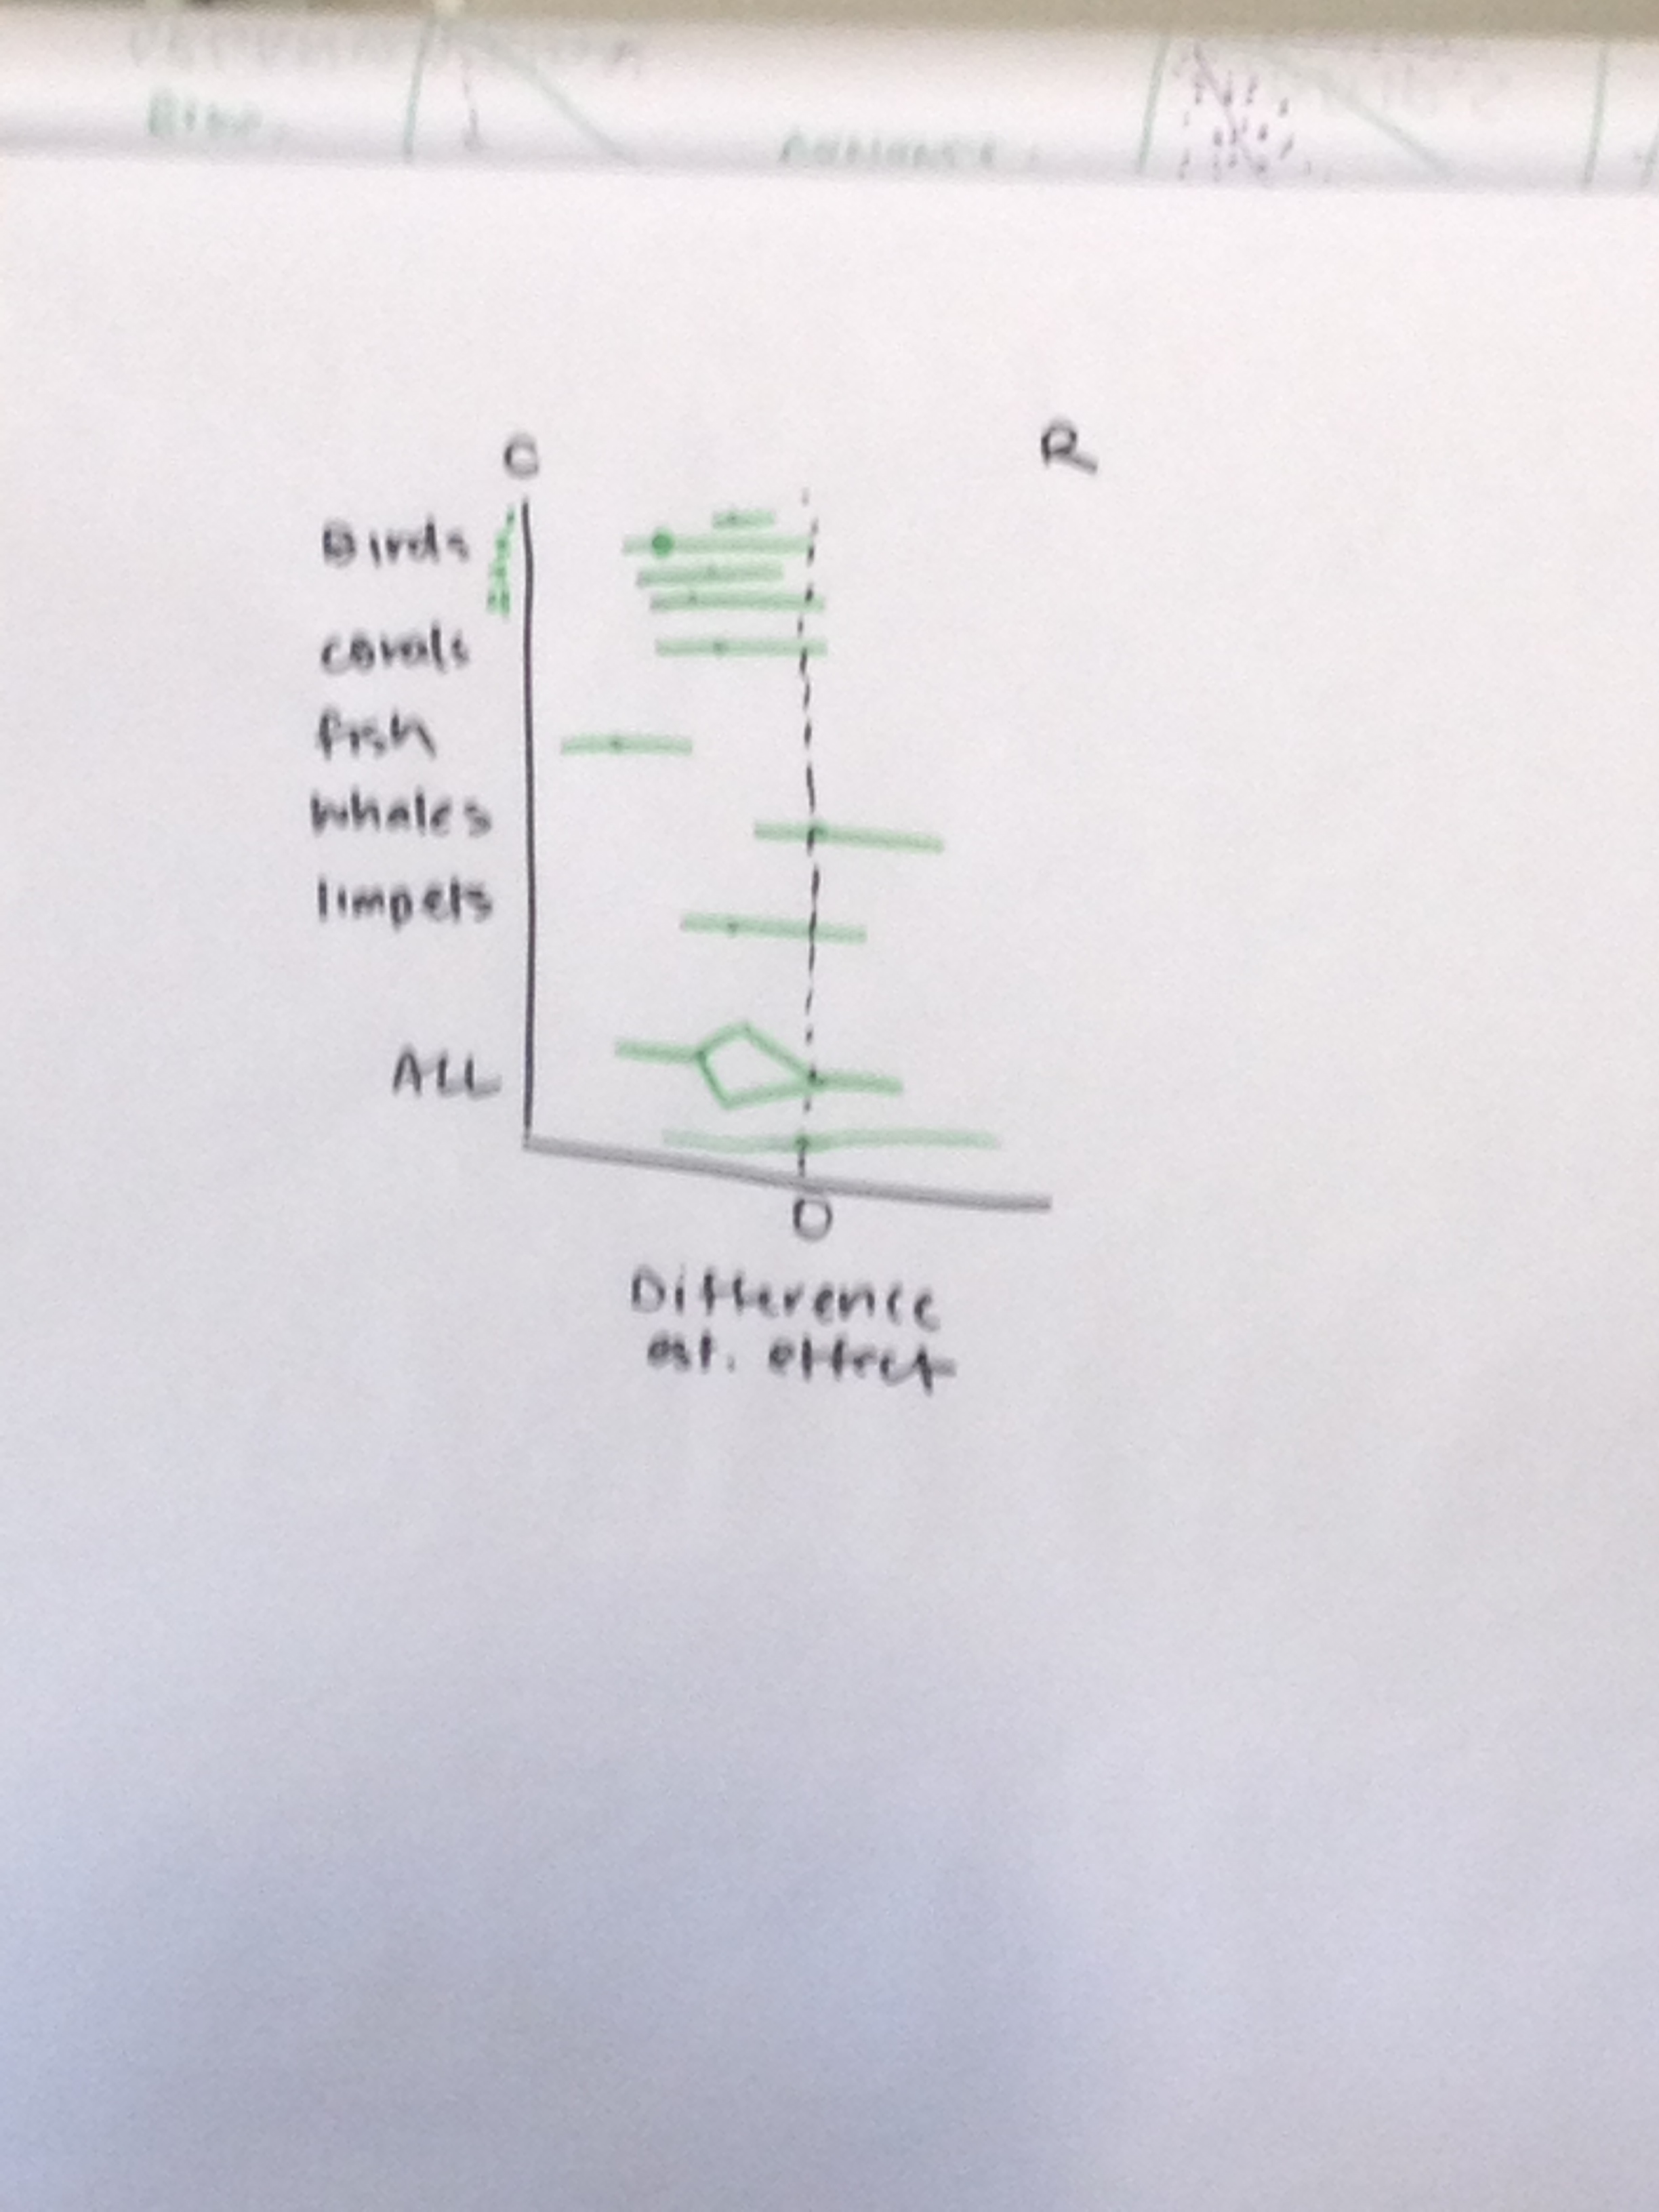 C R
Birds
corals
fish
whales
limpets
ALL
0
Difference
est. effect